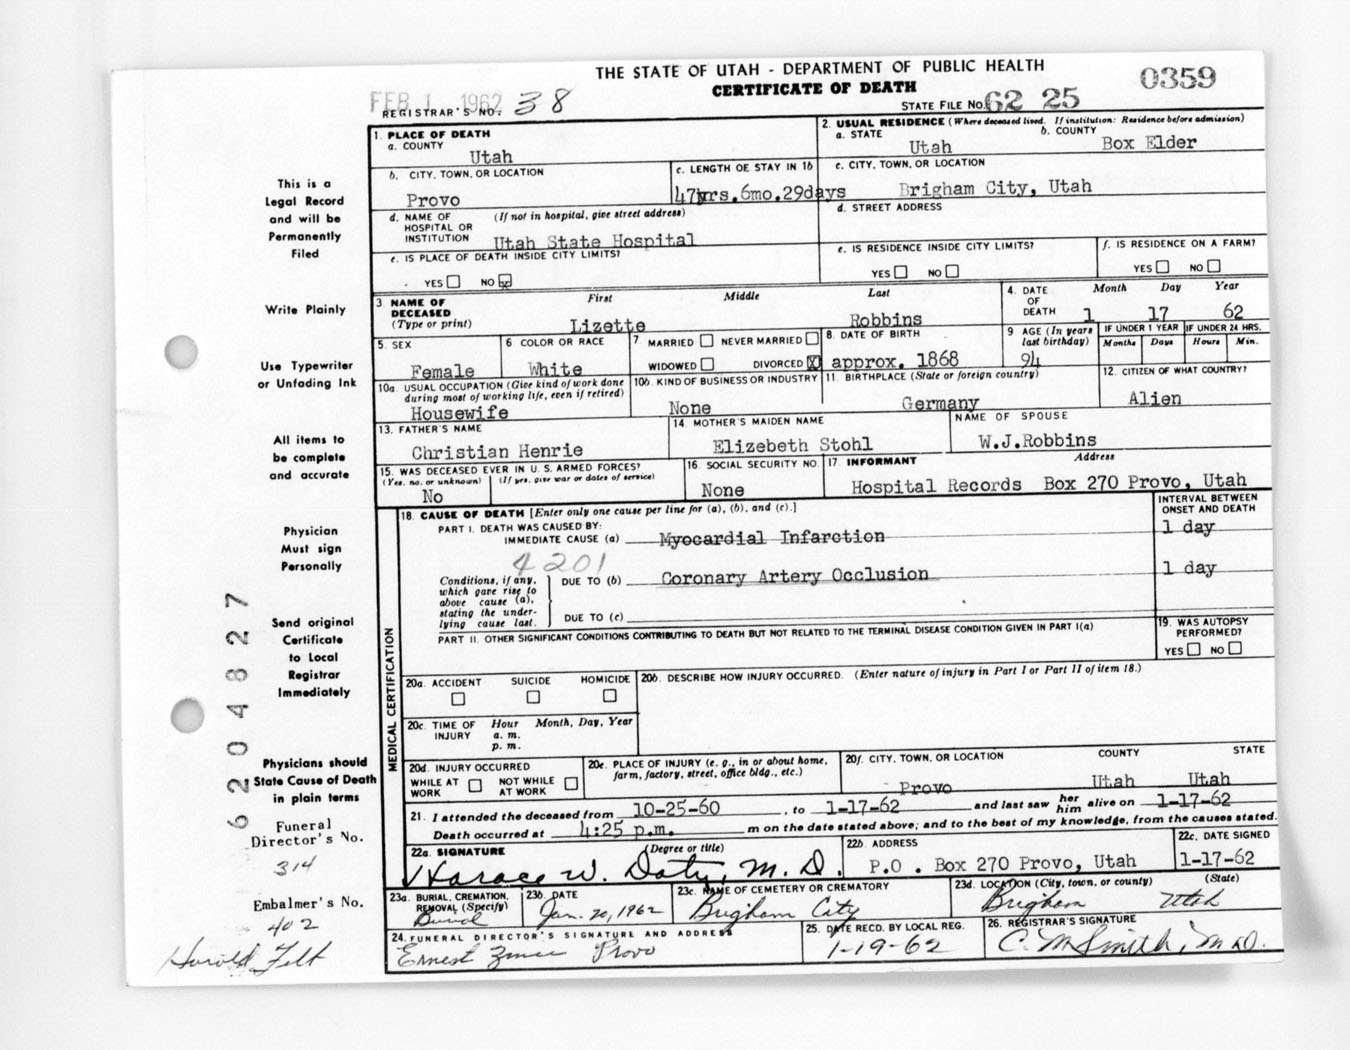 THE STATE OF UTAH - DEPARTMENT OF PUBLIC HEALTH
CERTIFICATE OF DEATH
0359
FEB 1 1962
REGISTRAR'S NO. 38
STATE FILE NO. 62 25
This is a
Legal Record
and will be
Permanently
Filed
Write Plainly
Use Typewriter
or Unfading Ink
All items to
be complete
and accurate
Physician
Must sign
Personally
Send original
Certificate
to Local
Registrar
Immediately
Physicians should
State Cause of Death
in plain terms
Funeral
Director's No.
314
Embalmer's No.
402
Harold Felt
6204827
1. PLACE OF DEATH
a. COUNTY
Utah
2. USUAL RESIDENCE (Where deceased lived. If institution: Residence before admission)
a. STATE
Utah
b. COUNTY
Box Elder
b. CITY, TOWN, OR LOCATION
Provo
c. LENGTH OF STAY IN 1b
47yrs.6mo.29days
c. CITY, TOWN, OR LOCATION
Brigham City, Utah
d. NAME OF (If not in hospital, give street address)
HOSPITAL OR
INSTITUTION Utah State Hospital
d. STREET ADDRESS
e. IS PLACE OF DEATH INSIDE CITY LIMITS?
YES NO x
e. IS RESIDENCE INSIDE CITY LIMITS?
YES NO
f. IS RESIDENCE ON A FARM?
YES NO
3 NAME OF First Middle Last
DECEASED
(Type or print) Lizette Robbins
4. DATE Month Day Year
OF
DEATH 1 17 62
5. SEX
Female
6 COLOR OR RACE
White
7 MARRIED NEVER MARRIED
WIDOWED DIVORCED X
8. DATE OF BIRTH
approx. 1868
9 AGE (In years
last birthday)
94
IF UNDER 1 YEAR
Months Days
IF UNDER 24 HRS.
Hours Min.
10a. USUAL OCCUPATION (Give kind of work done
during most of working life, even if retired)
Housewife
10b. KIND OF BUSINESS OR INDUSTRY
None
11. BIRTHPLACE (State or foreign country)
Germany
12. CITIZEN OF WHAT COUNTRY?
Alien
13. FATHER'S NAME
Christian Henrie
14. MOTHER'S MAIDEN NAME
Elizebeth Stohl
NAME OF SPOUSE
W.J.Robbins
15. WAS DECEASED EVER IN U. S. ARMED FORCES?
(Yes, no, or unknown) (If yes, give war or dates of service)
No
16. SOCIAL SECURITY NO.
None
17. INFORMANT Address
Hospital Records Box 270 Provo, Utah
MEDICAL CERTIFICATION
18. CAUSE OF DEATH [Enter only one cause per line for (a), (b), and (c).]
INTERVAL BETWEEN
ONSET AND DEATH
PART I. DEATH WAS CAUSED BY:
IMMEDIATE CAUSE (a) Myocardial Infarction 1 day
4201
Conditions, if any,
which gave rise to
above cause (a),
stating the under-
lying cause last.
DUE TO (b) Coronary Artery Occlusion 1 day
DUE TO (c)
PART II. OTHER SIGNIFICANT CONDITIONS CONTRIBUTING TO DEATH BUT NOT RELATED TO THE TERMINAL DISEASE CONDITION GIVEN IN PART I(a)
19. WAS AUTOPSY
PERFORMED?
YES NO
20a. ACCIDENT SUICIDE HOMICIDE
20b. DESCRIBE HOW INJURY OCCURRED. (Enter nature of injury in Part I or Part II of item 18.)
20c. TIME OF Hour Month, Day, Year
INJURY a. m.
p. m.
20d. INJURY OCCURRED
WHILE AT WORK NOT WHILE AT WORK
20e. PLACE OF INJURY (e. g., in or about home,
farm, factory, street, office bldg., etc.)
20f. CITY, TOWN, OR LOCATION COUNTY STATE
Provo Utah Utah
21. I attended the deceased from 10-25-60, to 1-17-62 and last saw her him alive on 1-17-62
Death occurred at 4:25 p.m. m on the date stated above; and to the best of my knowledge, from the causes stated.
22a. SIGNATURE (Degree or title)
Horace W. Doty, M.D.
22b. ADDRESS
P.O. Box 270 Provo, Utah
22c. DATE SIGNED
1-17-62
23a. BURIAL, CREMATION,
REMOVAL (Specify)
Burial
23b. DATE
Jan. 20, 1962
23c. NAME OF CEMETERY OR CREMATORY
Brigham City
23d. LOCATION (City, town, or county) (State)
Brigham Utah
24. FUNERAL DIRECTOR'S SIGNATURE AND ADDRESS
Ernest Provo
25. DATE RECD. BY LOCAL REG.
1-19-62
26. REGISTRAR'S SIGNATURE
C. M. Smith, M.D.